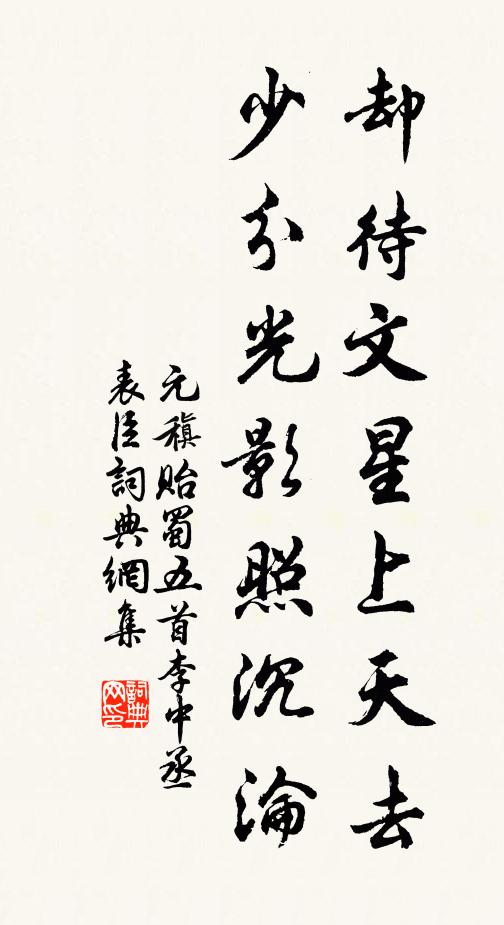 却待文星上天去
少分光影照沉淪
元稹貽蜀五首李中丞
表臣詞典網集
詞典
网印